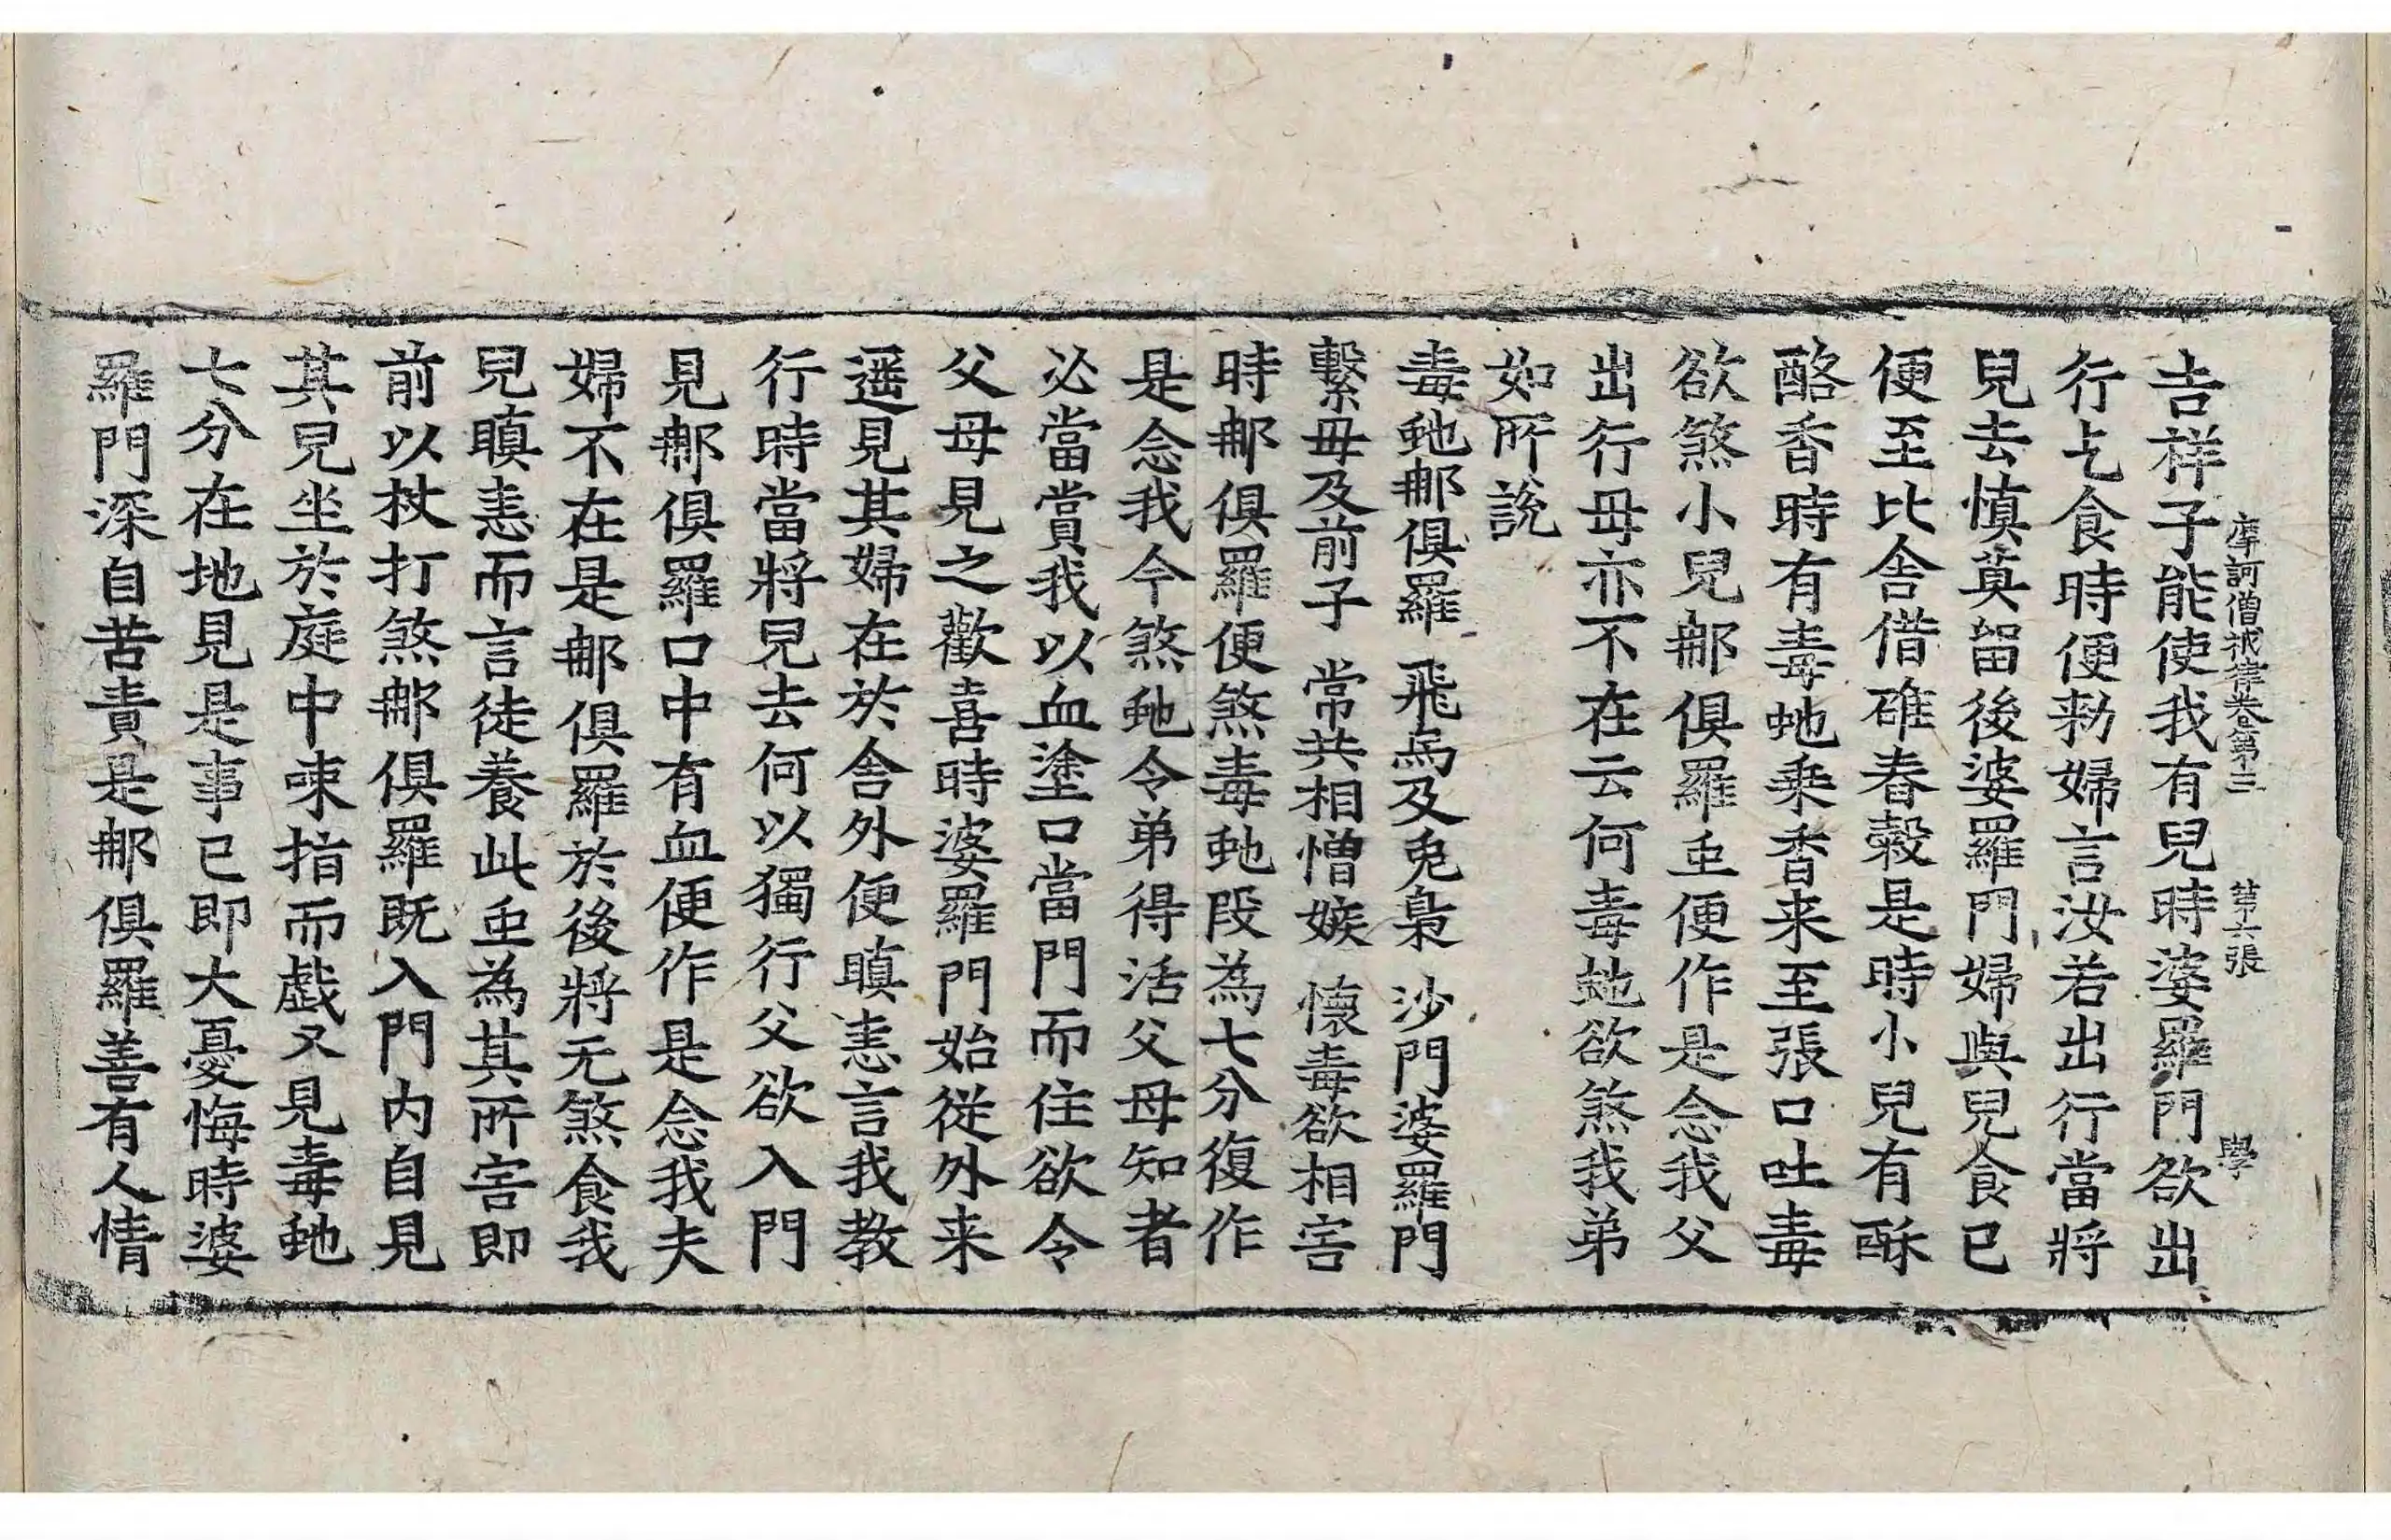 摩訶僧祇律卷第三 第六張 學
吉祥子能使我有兒時婆羅門欲出
行乞食時便勑婦言汝若出行當將
兒去慎莫留後婆羅門婦與兒食已
便至比舍借碓舂穀是時小兒有酥
酪香時有毒虵乗香来至張口吐毒
欲煞小兒那俱羅虫便作是念我父
出行母亦不在云何毒虵欲煞我弟
如所說
毒虵那俱羅 飛烏及兎梟 沙門婆羅門
繫母及前子 常共相憎嫉 懷毒欲相害
時那俱羅便煞毒虵段為七分復作
是念我今煞虵令弟得活父母知者
必當賞我以血塗口當門而住欲令
父母見之歡喜時婆羅門始從外来
遥見其婦在於舍外便瞋恚言我教
行時當將兒去何以獨行父欲入門
見那俱羅口中有血便作是念我夫
婦不在是那俱羅於後將无煞食我
兒瞋恚而言徒養此虫為其所害即
前以杖打煞那俱羅既入門内自見
其兒坐於庭中𠲿指而戯又見毒虵
七分在地見是事已即大憂悔時婆
羅門深自苦責是那俱羅善有人情